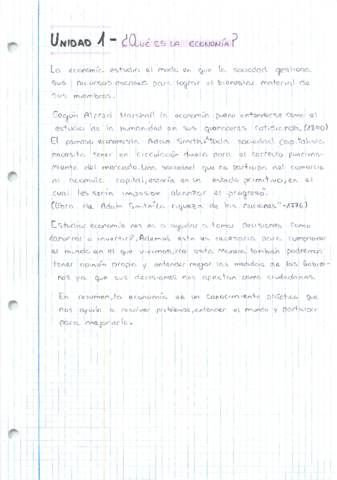 UNIDAD 1 - ¿QUÉ ES LA ECONOMÍA?
La economía estudia el modo en que la sociedad gestiona
sus recursos escasos para lograr el bienestar material de
sus miembros.
Según Alfred Marshall la economía puede entenderse como el
estudio de la humanidad en sus quehaceres cotidianos. (1890)
El famoso economista Adam Smith: "Toda sociedad capitalista
necesita tener en circulación dinero para el correcto funciona-
miento del mercado. Una sociedad que no participa del comercio
ni acumula capital, estaría en un estado primitivo, en el
cual les sería imposible alcanzar el progreso"
(Obra de Adam Smith "La riqueza de las naciones" -1776)
Estudiar economía nos va a ayudar a tomar decisiones como
¿ahorrar o invertir?. Además esta es necesaria para comprender
el mundo en el que vivimos, de esta manera también podremos
tener opinión propia y entender mejor las medidas de los Gobier-
nos ya que sus decisiones nos afectan como ciudadanos.
En resumen, la economía es un conocimiento práctico que
nos ayuda a resolver problemas, entender el mundo y participar
para mejorarlo.